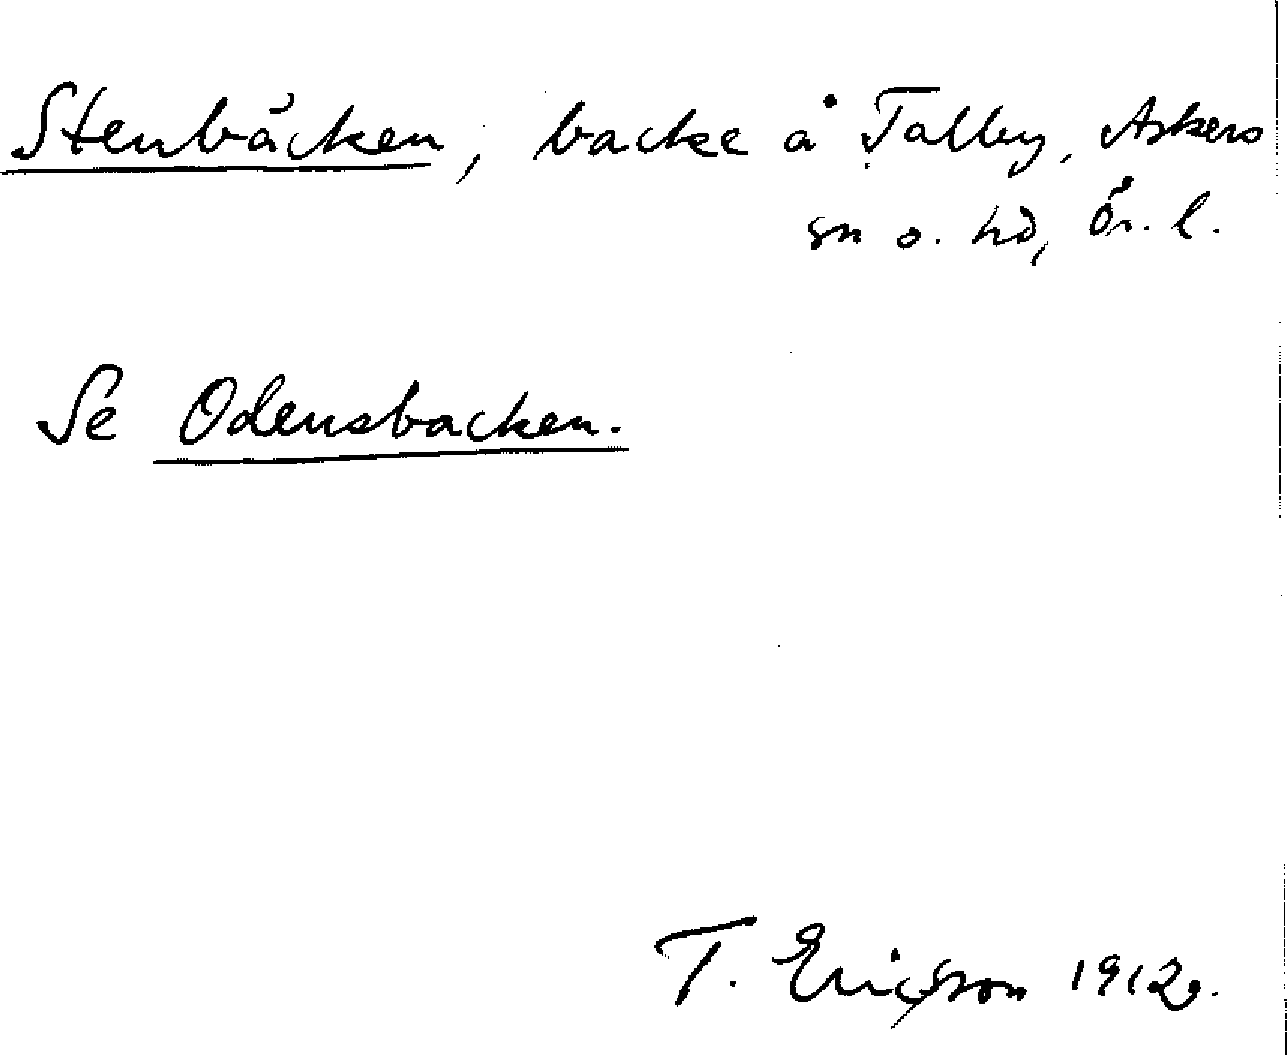 Stenbäcken, backe å Tallby, Askers
sn o. hd, Ör. l.
Se Odensbacken.
T. Ericsson 1912.